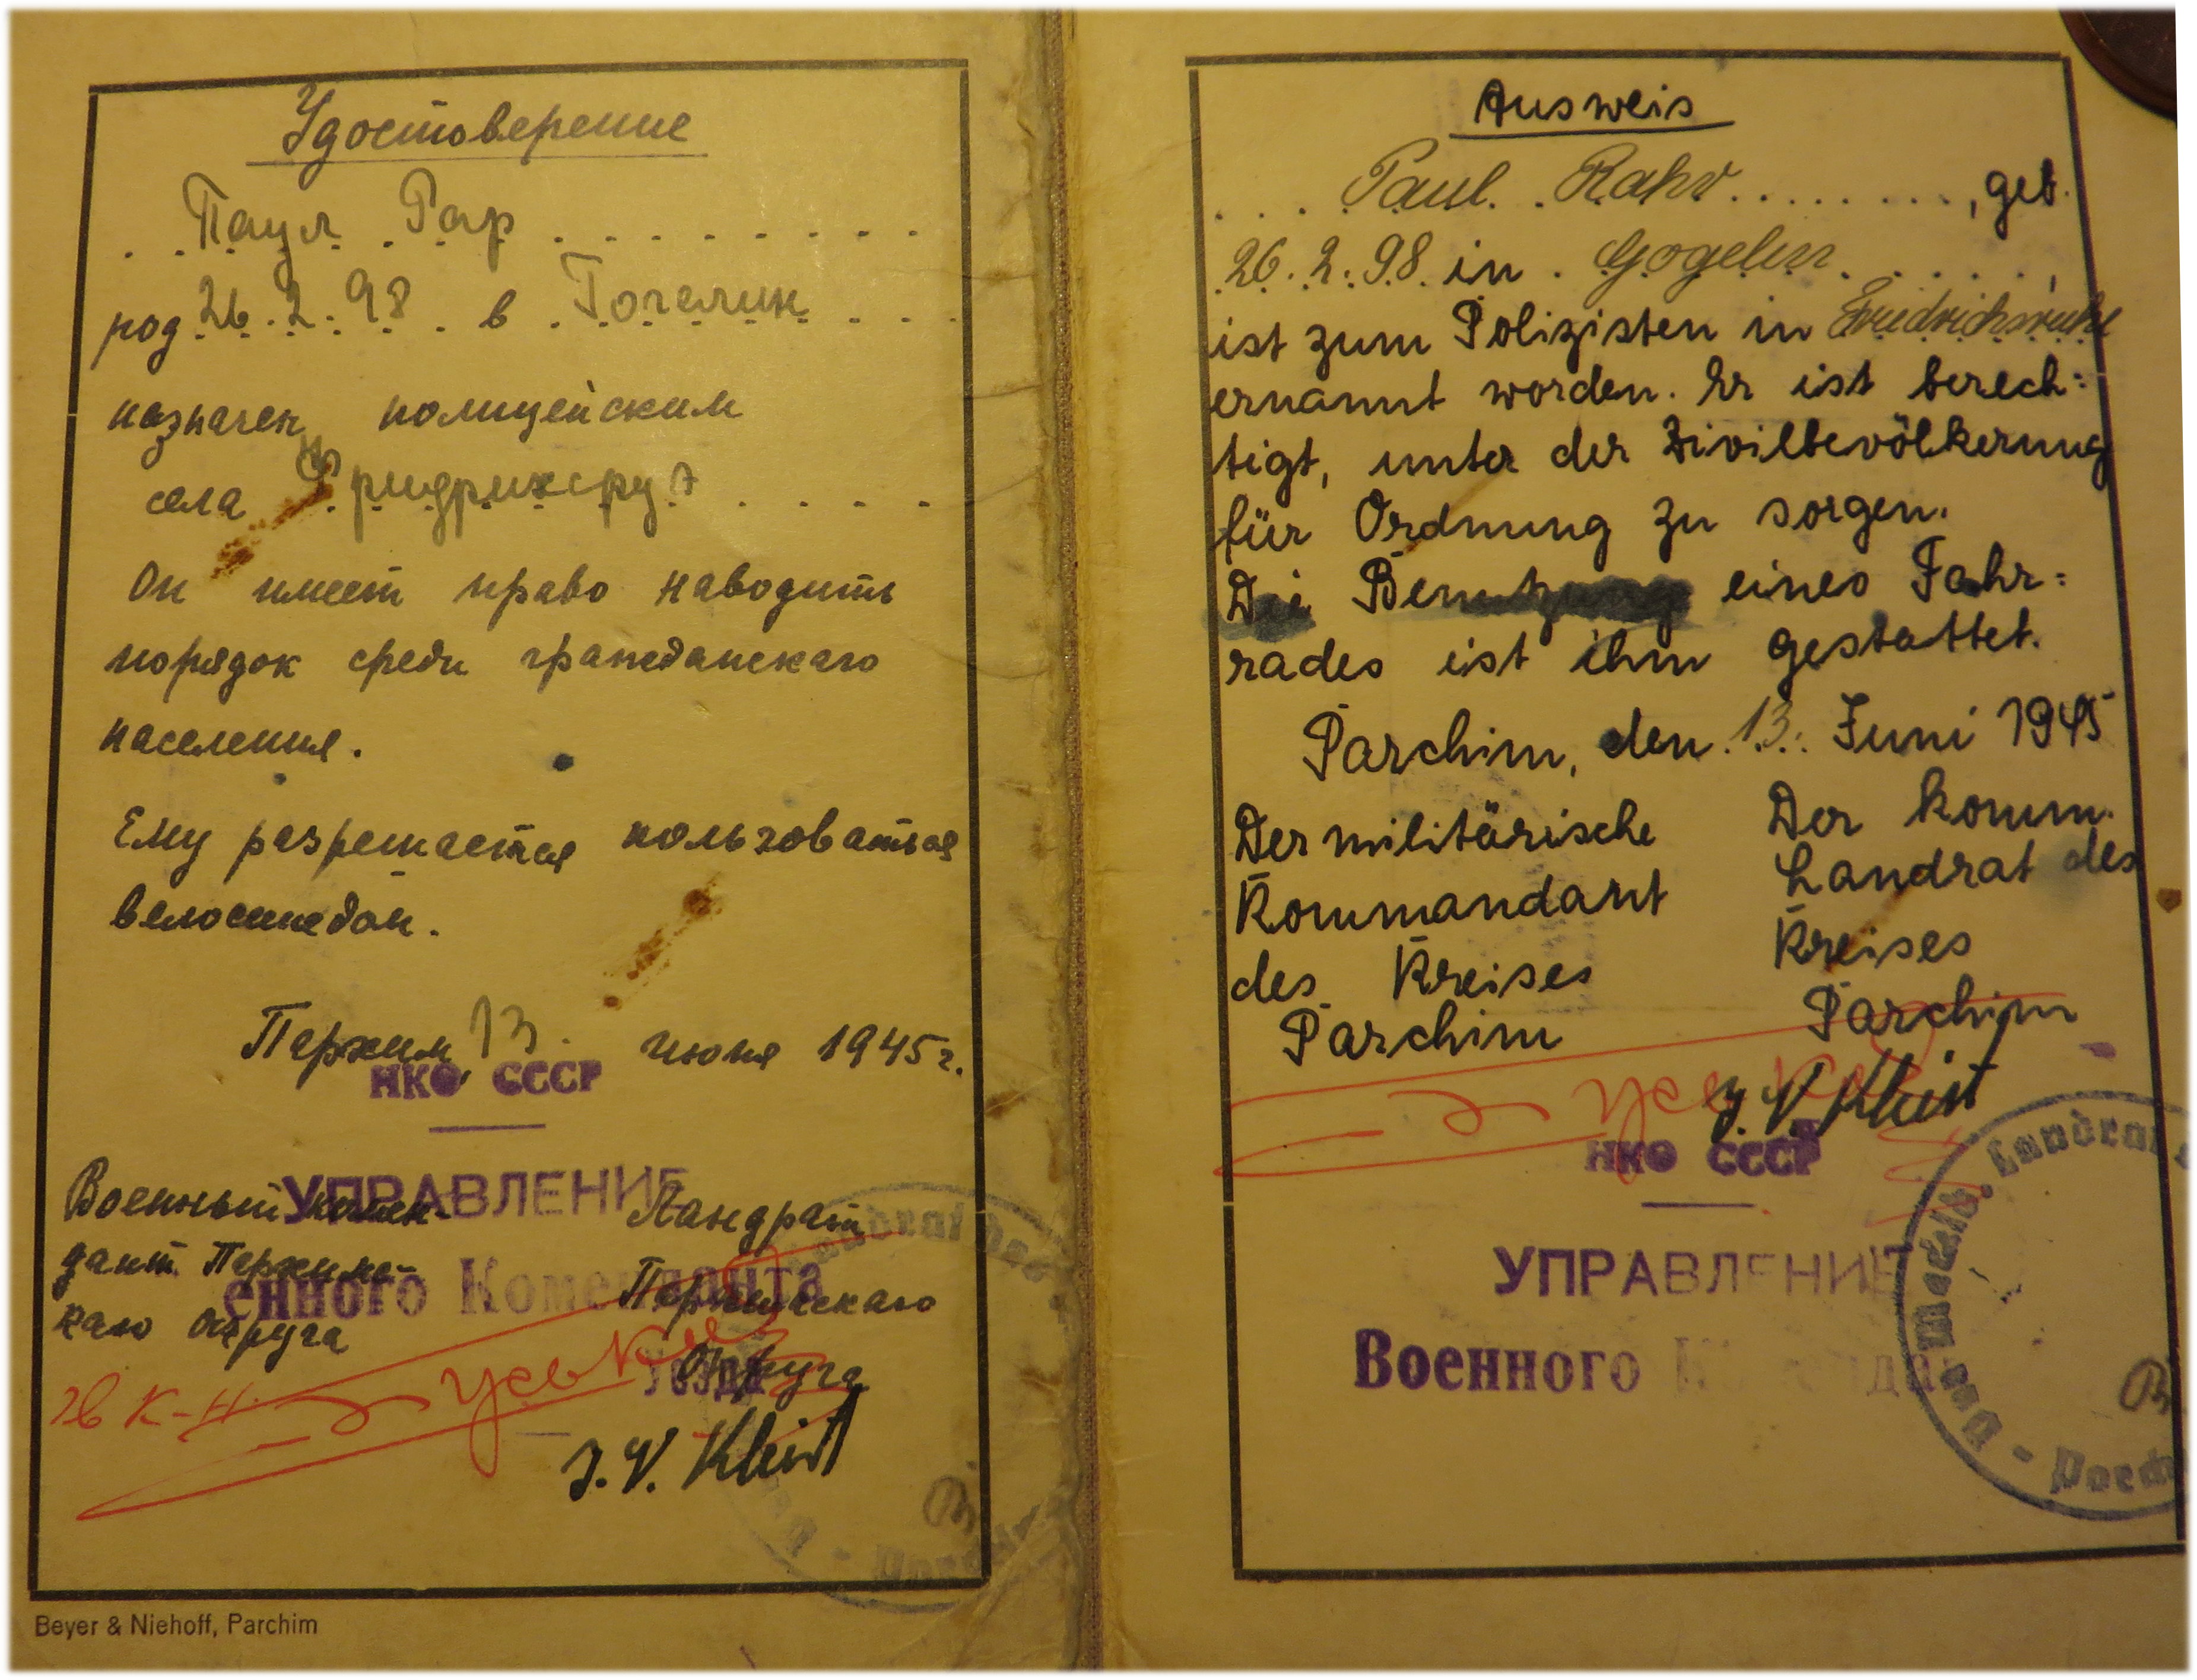 Удостоверение
. . Паул . Рар . . . . . . . . .
род 26. 2. 98 . в . Гогелин . . .
назначен полицейским
села Фридрихсруэ . . . .
Он имеет право наводить
порядок среди гражданскаго
населения.
Ему разрешается пользоваться
велосипедом.
Пархим 13. июня 1945 г.
НКО СССР
УПРАВЛЕНИЕ
енного Коменданта
Уезда
Военный комен-
дант Пархимс-
каго округа
Ландрат
Пархимскаго
округа
Гуськов
J. V. Kleist
Beyer & Niehoff, Parchim
Ausweis
. . . Paul . Rahr . . . . . . . . , geb.
26. 2. 98. in . Gogelin . . . . . ,
ist zum Polizisten in Friedrichsruhe
ernannt worden. Er ist berech=
tigt, unter der Zivilbevölkerung
für Ordnung zu sorgen.
Die Benutzung eines Fahr=
rades ist ihm gestattet.
Parchim, den 13. Juni 1945
Der militärische
Kommandant
des Kreises
Parchim
Der komm.
Landrat des
Kreises
Parchim
J. V. Kleist
НКО СССР
УПРАВЛЕНИЕ
Военного Коменда
Der Meckld. Landrat